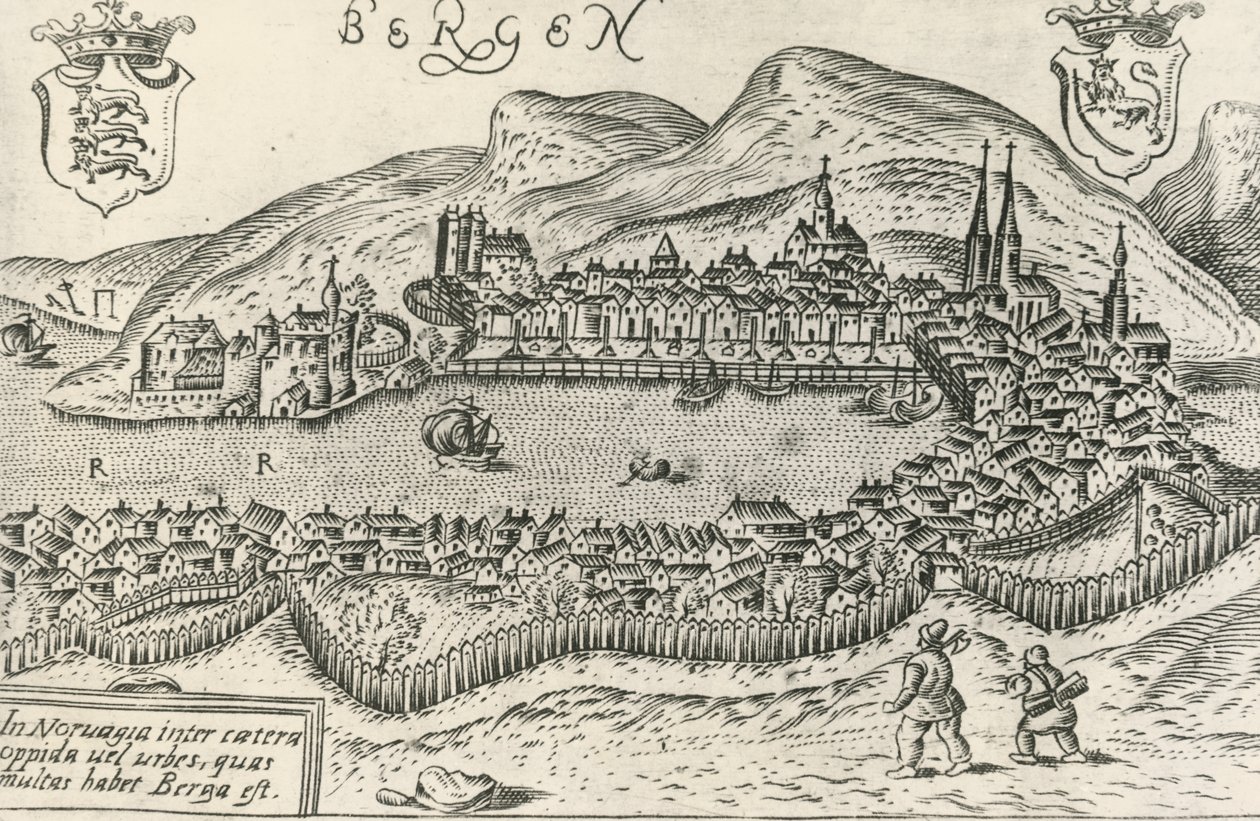 BERGEN
R R
In Noruagia inter cætera
oppida uel urbes, quas
multas habet Berga est.